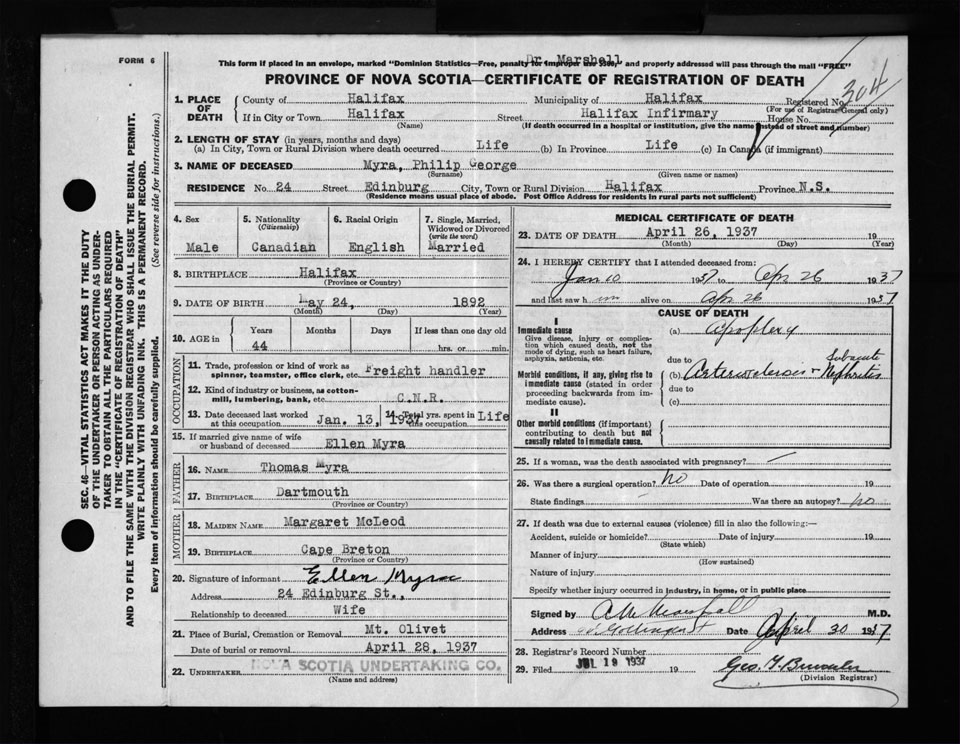 FORM 6
Dr. Marshall
This form if placed in an envelope, marked "Dominion Statistics—Free, penalty for improper use $300, and properly addressed will pass through the mail "FREE"
PROVINCE OF NOVA SCOTIA—CERTIFICATE OF REGISTRATION OF DEATH
304
1. PLACE OF DEATH County of Halifax Municipality of Halifax Registered No.
(For use of Registrar General only)
If in City or Town Halifax Street Halifax Infirmary House No.
(Name) (If death occurred in a hospital or institution, give the name instead of street and number)
2. LENGTH OF STAY (in years, months and days)
(a) In City, Town or Rural Division where death occurred Life (b) In Province Life (c) In Canada (if immigrant)
3. NAME OF DECEASED Myra, Philip George
(Surname) (Given name or names)
RESIDENCE No. 24 Street Edinburg City, Town or Rural Division Halifax Province N.S.
(Residence means usual place of abode. Post Office Address for residents in rural parts not sufficient)
4. Sex
Male
5. Nationality
(Citizenship)
Canadian
6. Racial Origin
English
7. Single, Married, Widowed or Divorced
(write the word)
Married
8. BIRTHPLACE Halifax
(Province or Country)
9. DATE OF BIRTH May 24, 1892
(Month) (Day) (Year)
10. AGE in Years Months Days If less than one day old
44 hrs. or min.
OCCUPATION
11. Trade, profession or kind of work as spinner, teamster, office clerk, etc. Freight handler
12. Kind of industry or business, as cotton-mill, lumbering, bank, etc. C.N.R.
13. Date deceased last worked at this occupation Jan. 13, 1937
14. Total yrs. spent in this occupation Life
15. If married give name of wife or husband of deceased Ellen Myra
FATHER
16. NAME Thomas Myra
17. BIRTHPLACE Dartmouth
(Province or Country)
MOTHER
18. MAIDEN NAME Margaret McLeod
19. BIRTHPLACE Cape Breton
(Province or Country)
20. Signature of informant Ellen Myra
Address 24 Edinburg St.,
Relationship to deceased Wife
21. Place of Burial, Cremation or Removal Mt. Olivet
Date of burial or removal April 28, 1937
22. UNDERTAKER NOVA SCOTIA UNDERTAKING CO.
(Name and address)
MEDICAL CERTIFICATE OF DEATH
23. DATE OF DEATH April 26, 1937 19
(Month) (Day) (Year)
24. I HEREBY CERTIFY that I attended deceased from:
Jan 10 1937 to Apr 26 1937
and last saw him alive on Apr 26 1937
CAUSE OF DEATH
I
Immediate cause (a) apoplexy
Give disease, injury or complication which caused death, not the mode of dying, such as heart failure, asphyxia, asthenia, etc.
due to
Morbid conditions, if any, giving rise to immediate cause (stated in order proceeding backwards from immediate cause).
(b) Arteriosclerosis + Subacute Nephritis
due to
(c)
II
Other morbid conditions (if important) contributing to death but not causally related to immediate cause.
25. If a woman, was the death associated with pregnancy? —
26. Was there a surgical operation? no Date of operation 19
State findings Was there an autopsy? no
27. If death was due to external causes (violence) fill in also the following:—
Accident, suicide or homicide? Date of injury 19
(State which)
Manner of injury
(How sustained)
Nature of injury
Specify whether injury occurred in industry, in home, or in public place
Signed by Marshall M.D.
Address Gottingen St Date April 30 1937
28. Registrar's Record Number
29. Filed JUL 19 1937 19
(Division Registrar)
SEC. 46—VITAL STATISTICS ACT MAKES IT THE DUTY
OF THE UNDERTAKER OR PERSON ACTING AS UNDER-
TAKER TO OBTAIN ALL THE PARTICULARS REQUIRED
IN THE "CERTIFICATE OF REGISTRATION OF DEATH"
AND TO FILE THE SAME WITH THE DIVISION REGISTRAR WHO SHALL ISSUE THE BURIAL PERMIT.
WRITE PLAINLY WITH UNFADING INK. THIS IS A PERMANENT RECORD.
Every item of information should be carefully supplied. (See reverse side for instructions.)